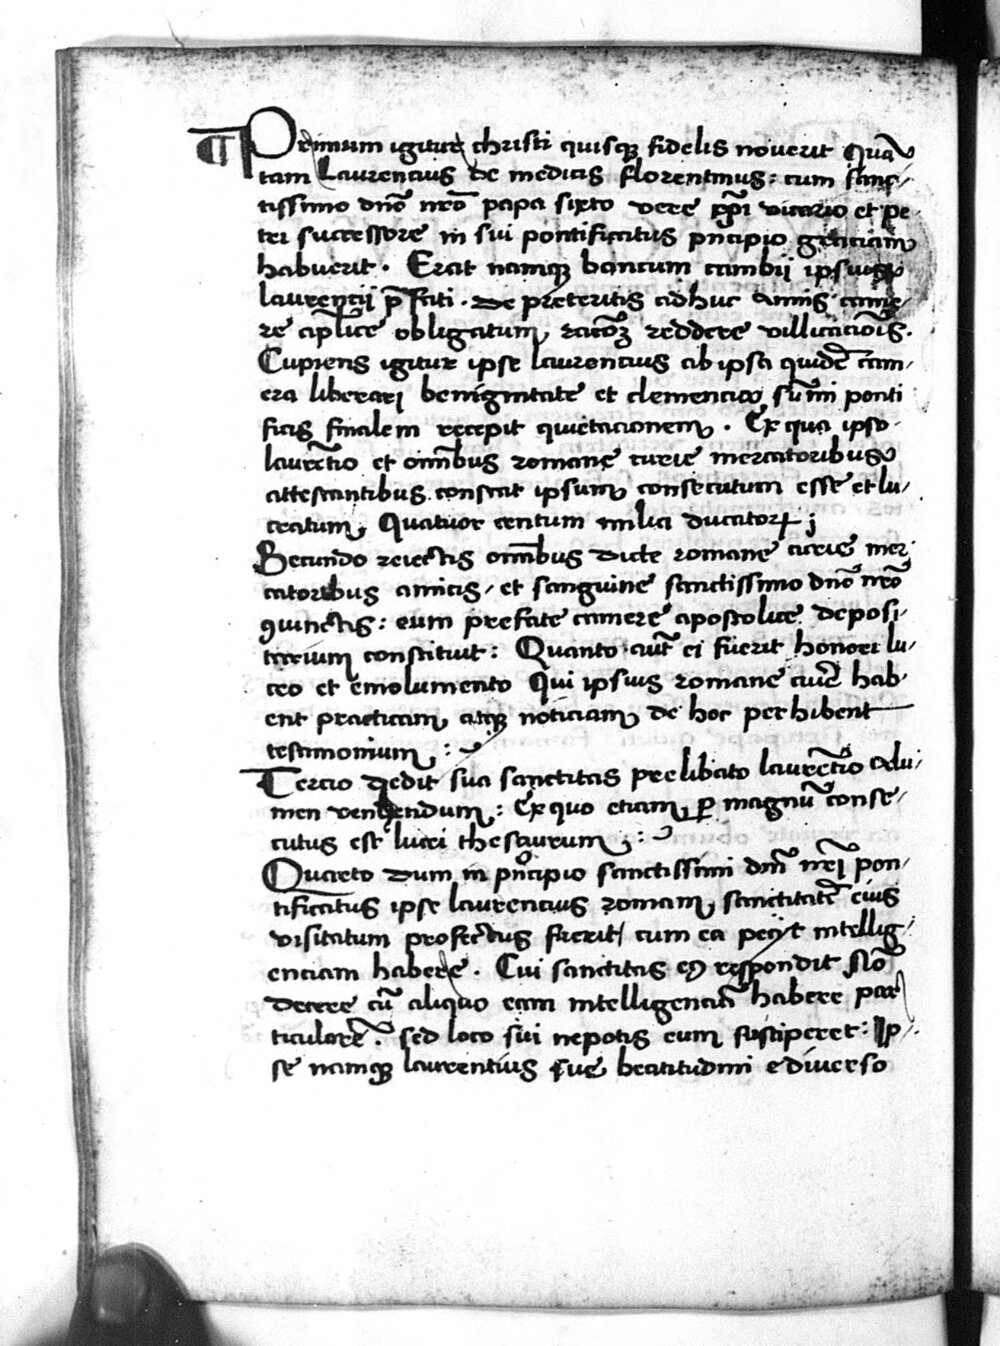 ¶ Primum igitur christi quisque fidelis noverit Quan
tam Laurencius de medicis florentinus: cum sanc/
tissimo dno nro papa sixto vere xpi vicario et pe
tri successore in sui pontificatus pncipio graciam
habuerit. Erat namque bancum cambij ipsius
laurencij pfati. De preteritis adhuc annis came
re aplice obligatum, racoem reddere villicacois.
Cupiens igitur ipse laurencius ab ipsa quidem cam/
era liberari benignitate et clemencia summi ponti
ficis finalem recepit quietacionem. Ex qua ipso
laurencio et omnibus romane curie mercatoribus
attestantibus constat ipsum consecutum esse et lu/
cratum, Quatuor centum milia ducatorum
Secundo reiectis omnibus dicte romane curie mer
catoribus amicis, et sanguine sanctissimo dno nro
coniunctis: eum prefate camere apostolice deposi/
tarium constituit: Quanto autem ei fuerit honori lu/
cro et emolumento Qui ipsius romane curie hab/
ent practicam, atque noticiam de hoc perhibent
testimonium:
Tercio dedit sua sanctitas prelibato laurencio alu/
men vendendum: Ex quo etiam, per magnum conse/
cutus est lucri thesaurum:
Quarto dum in pncipio sanctissimi dni nri pon/
tificatus ipse laurencius romam, sanctitatem eius
visitatum profectus fuerit, cum ea petijt intellig/
enciam habere. Cui sanctitas eius respondit Non
decere cum aliquo eam intelligenciam habere par
ticularem. sed loco sui nepotis eum susciperet: Ip/
se namque laurentius sue beatitudini e diverso